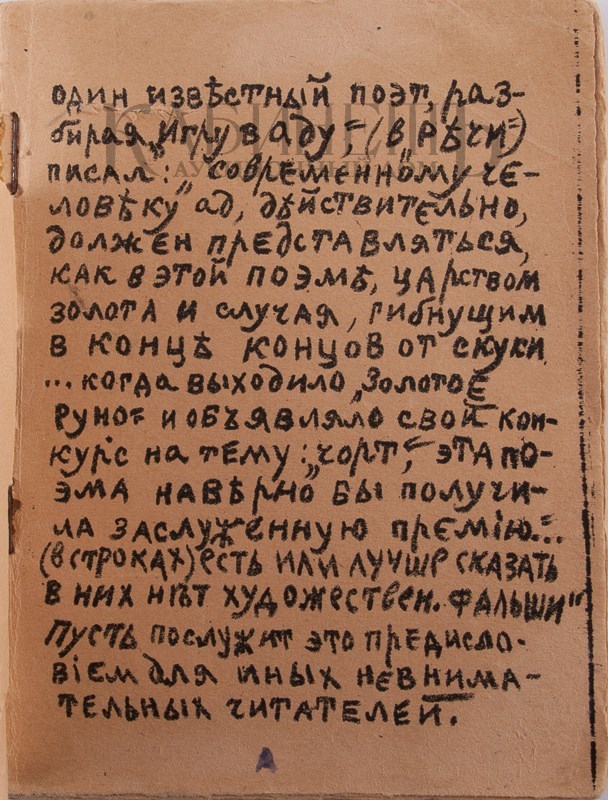 один извѣстный поэт, раз-
бирая „Игру в аду“ (в „Рѣчи“)
писал: „современному че-
ловѣку ад, дѣйствительно,
должен представляться,
как в этой поэмѣ, царством
золота и случая, гибнущим
в концѣ концов от скуки
...когда выходило „Золотое
руно“ и объявляло свой кон-
курс на тему: „чорт“, эта по-
эма навѣрно бы получи-
ла заслуженную премію...
(в строках) есть или лучше сказать
в них нѣт художествен. фальши“
Пусть послужит это предисло-
віем для иных невнима-
тельных читателей.
А